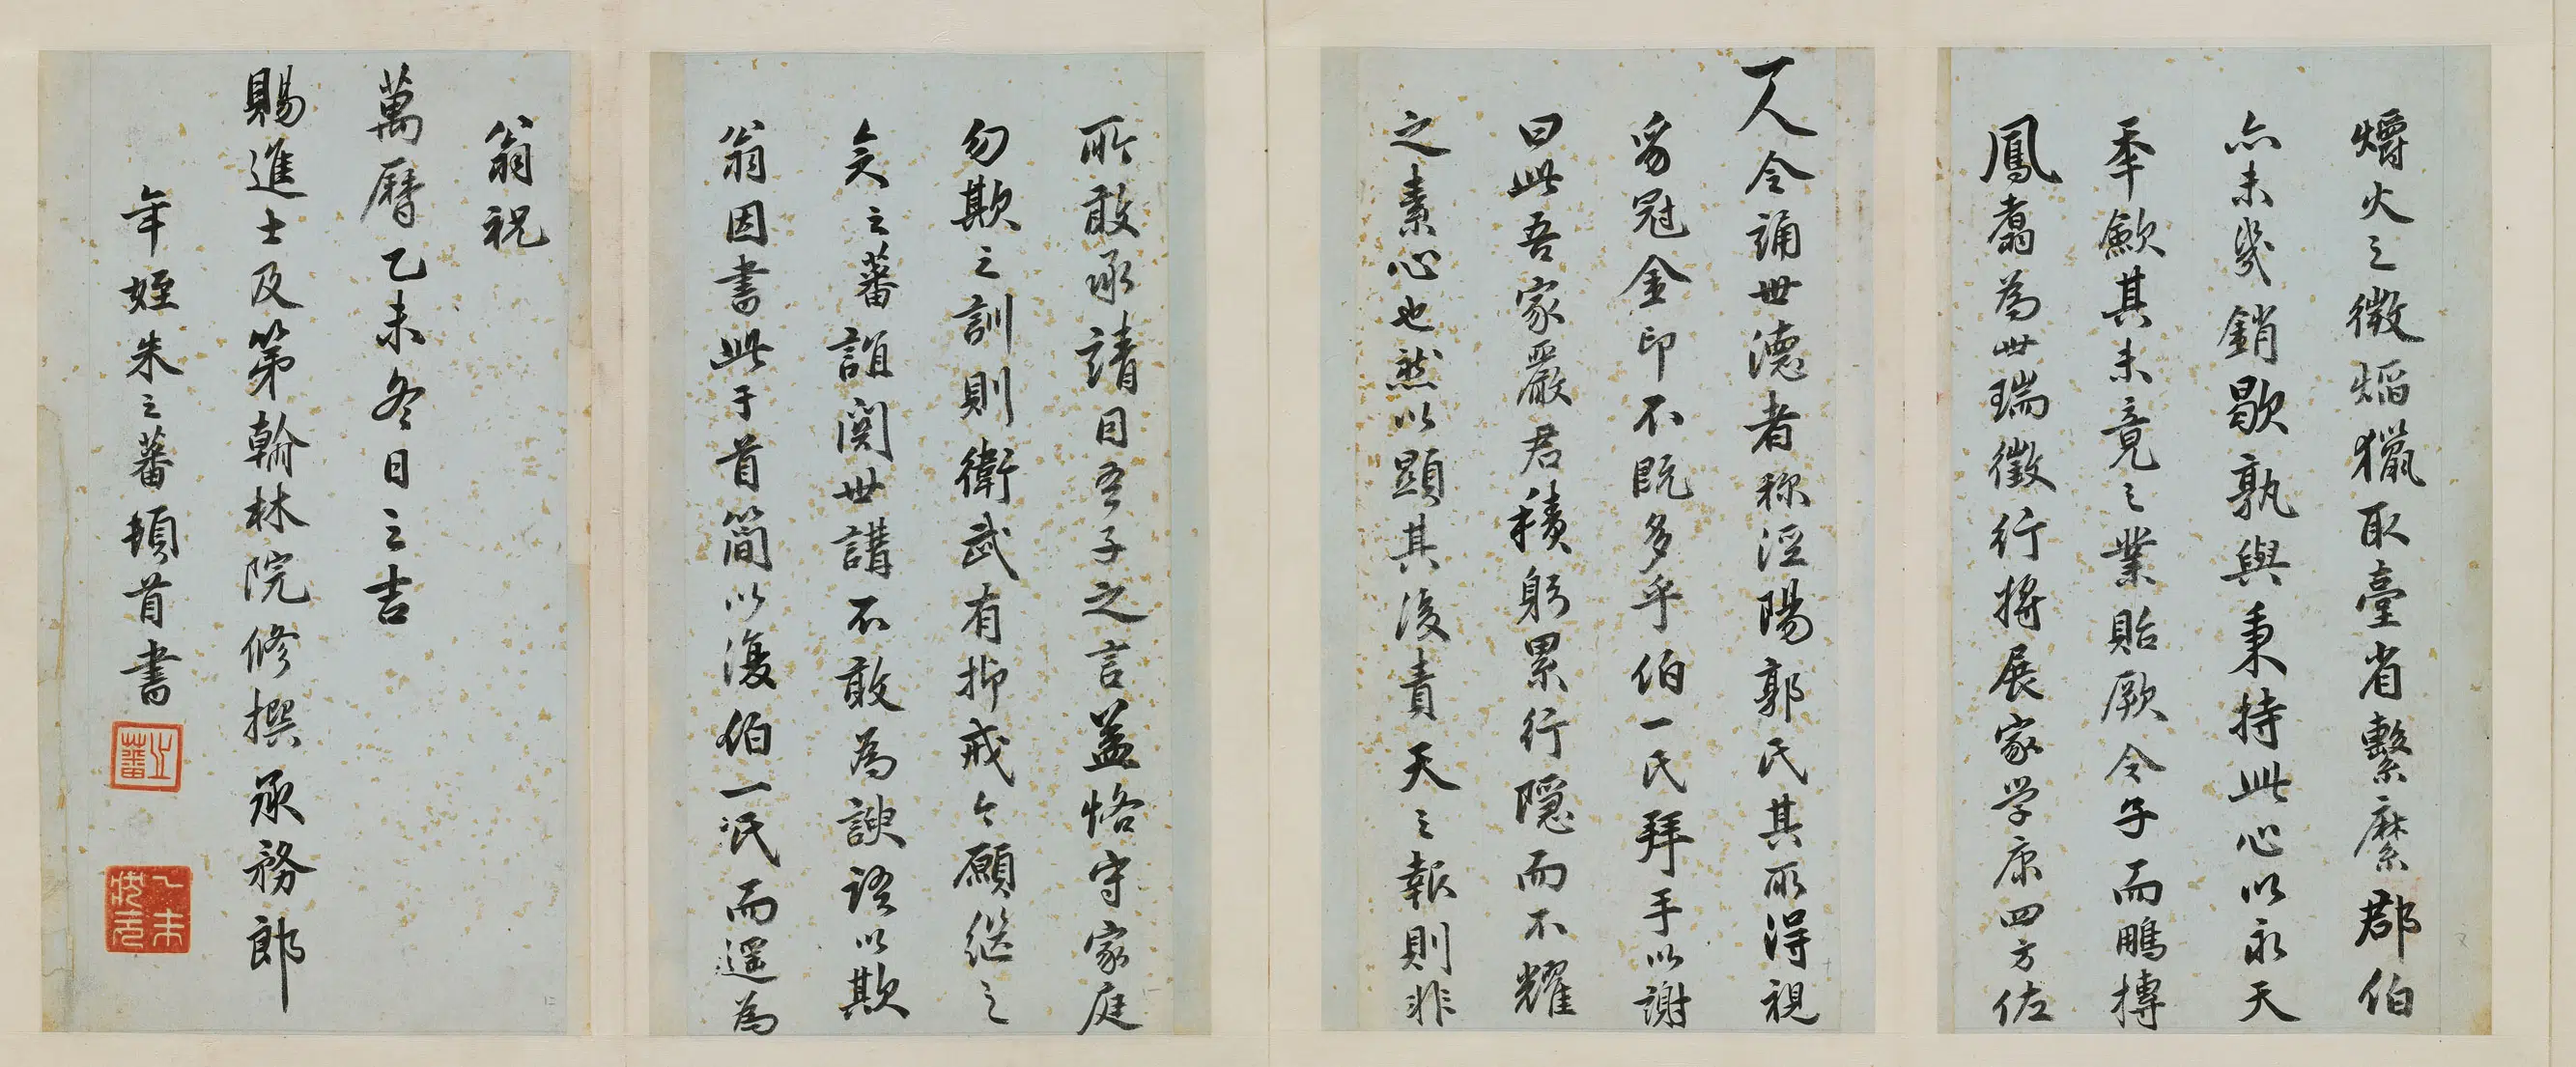 爝火之微焰獵取臺省繫縻郡伯
亦未幾銷歇孰與秉持此心以永天
年斂其未竟之業貽厥令子而鵬摶
鳳翥為世瑞徵行將展家学康四方佐
一人令誦世德者称涇陽郭氏其所得視
豸冠金印不既多乎伯一氏拜手以謝
曰此吾家嚴君積躬累行隱而不耀
之素心也然以顯其後責天之報則非
所敢承請目吾子之言益恪守家庭
勿欺之訓則衛武有抑戒之願継之
矣之蕃誼関世講不敢為諛語以欺
翁因書此于首簡以復伯一氏而遥為
翁祝
萬曆乙未冬日之吉
賜進士及第翰林院修撰承務郎
年姪朱之蕃頓首書
之蕃
乙未狀元